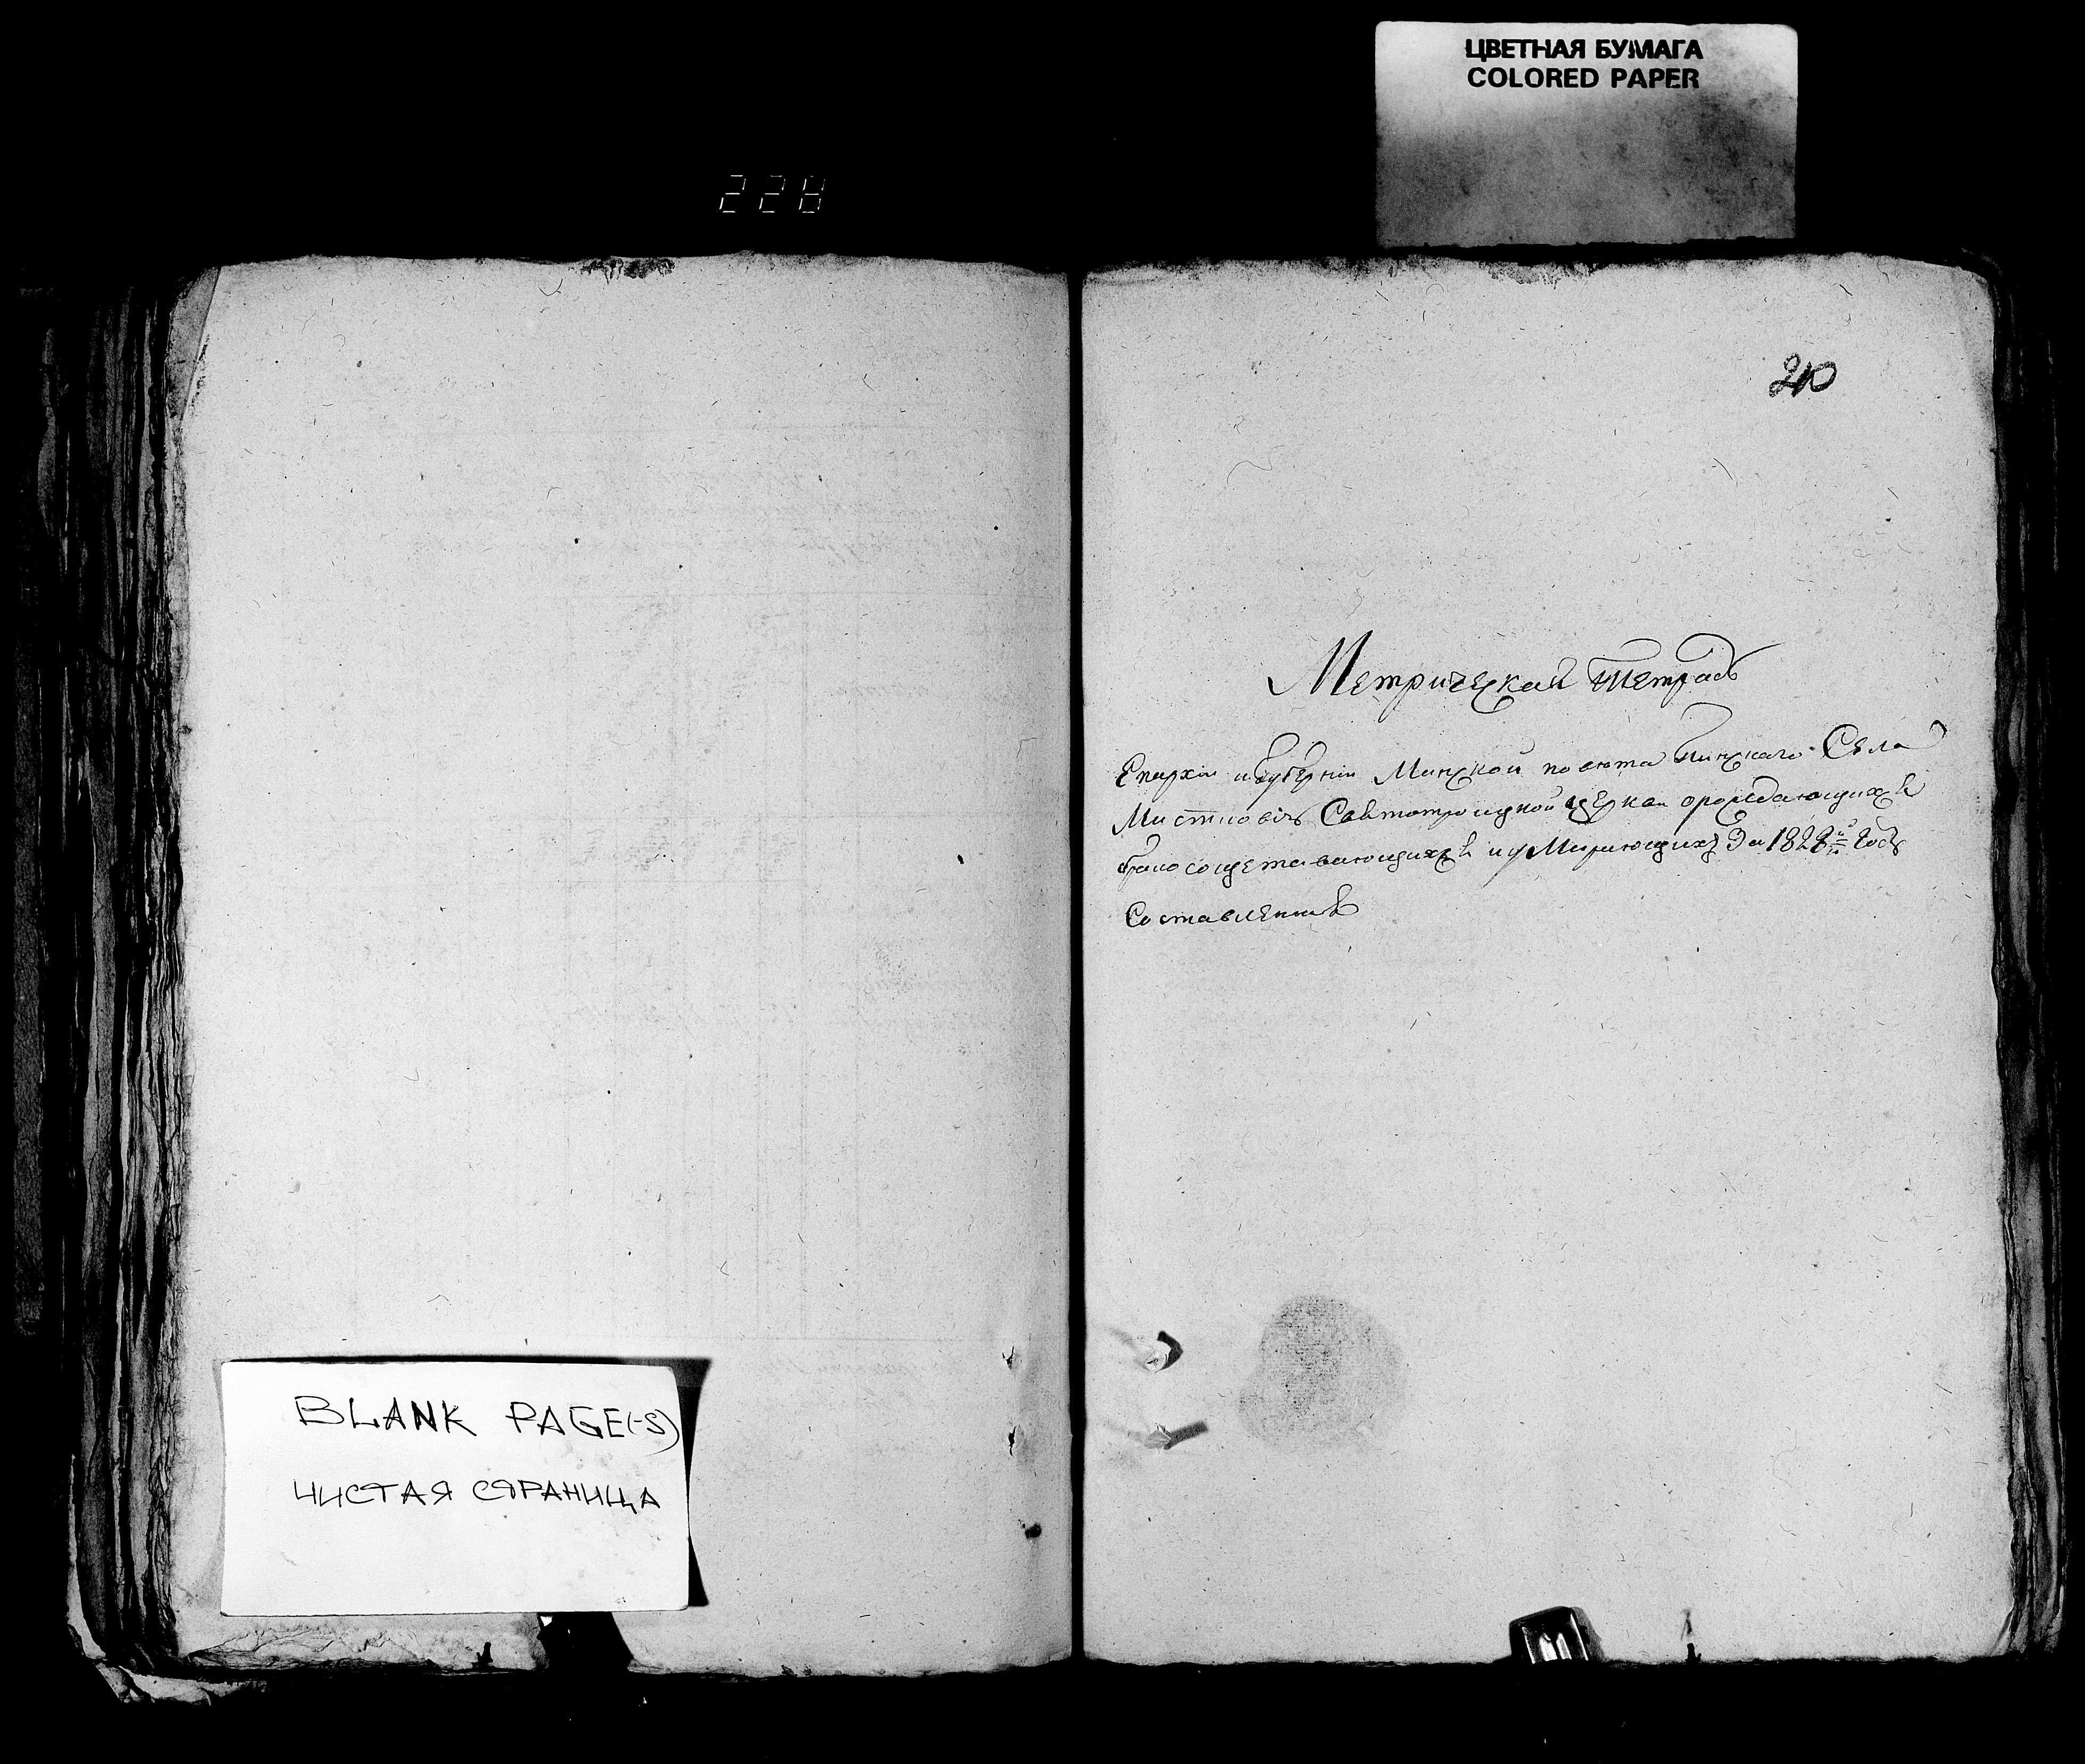 ЦВЕТНАЯ БУМАГА
COLORED PAPER
228
210
Метрическая тетрадь
Епархіи и Губерніи Минской повѣта Пинскаго Села
Мистковичь Святотроицкой церкви о рождающихся
бракосочетавающихся и умирающихъ За 1828й годъ
Составленна
BLANK PAGE(-S)
ЧИСТАЯ СТРАНИЦА